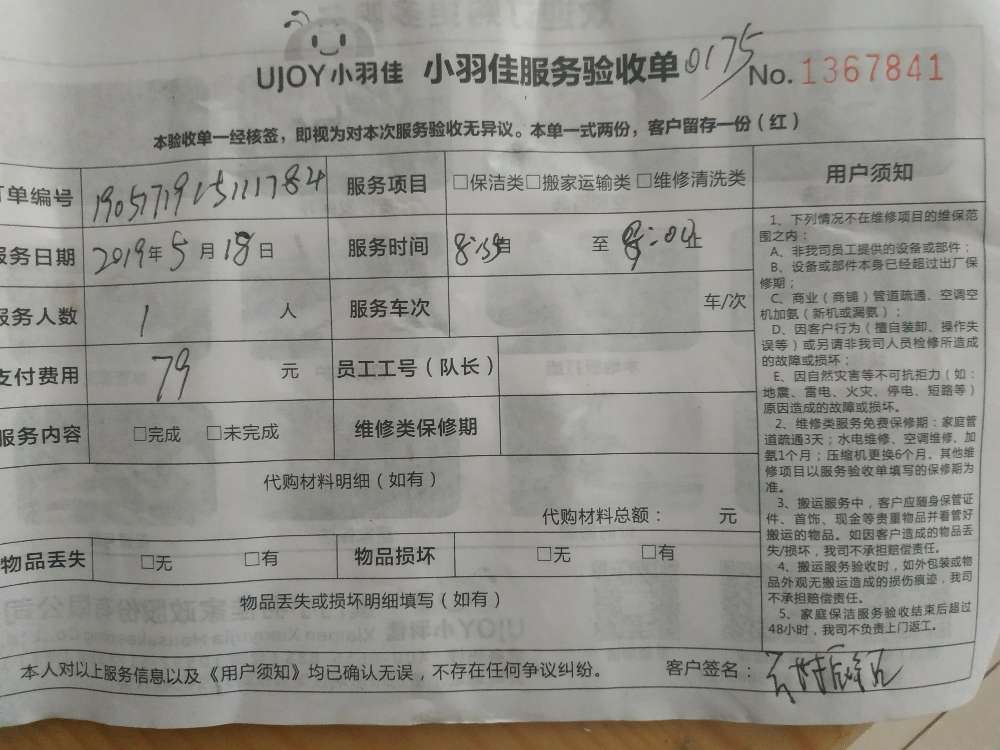 UJOY小羽佳 小羽佳服务验收单 0175 No. 1367841
本验收单一经核签，即视为对本次服务验收无异议。本单一式两份，客户留存一份（红）
单编号 服务项目 □保洁类□搬家运输类 □维修清洗类
服务日期 2019年5月18日 服务时间 至 止
服务人数 1 人 服务车次 车/次
支付费用 79 元 员工工号（队长）
服务内容 □完成 □未完成 维修类保修期
代购材料明细（如有）
代购材料总额： 元
物品丢失 □无 □有 物品损坏 □无 □有
物品丢失或损坏明细填写（如有）
用户须知
1、下列情况不在维修项目的维保范
围之内：
A、非我司员工提供的设备或部件；
B、设备或部件本身已经超过出厂保
修期；
C、商业（商铺）管道疏通、空调空
机加氨（新机或漏氨）；
D、因客户行为（擅自装卸、操作失
误等）或另请非我司人员检修所造成
的故障或损坏；
E、因自然灾害等不可抗拒力（如：
地震、雷电、火灾、停电、短路等）
原因造成的故障或损坏。
2、维修类服务免费保修期：家庭管
道疏通3天；水电维修、空调维修、加
氨1个月；压缩机更换6个月。其他维
修项目以服务验收单填写的保修期为
准。
3、搬运服务中，客户应随身保管证
件、首饰、现金等贵重物品并看管好
搬运的物品。如因客户造成的物品丢
失/损坏，我司不承担赔偿责任。
4、搬运服务验收时，如外包装或物
品外观无搬运造成的损伤痕迹，我司
不承担赔偿责任。
5、家庭保洁服务验收结束后超过
48小时，我司不负责上门返工。
本人对以上服务信息以及《用户须知》均已确认无误，不存在任何争议纠纷。 客户签名：